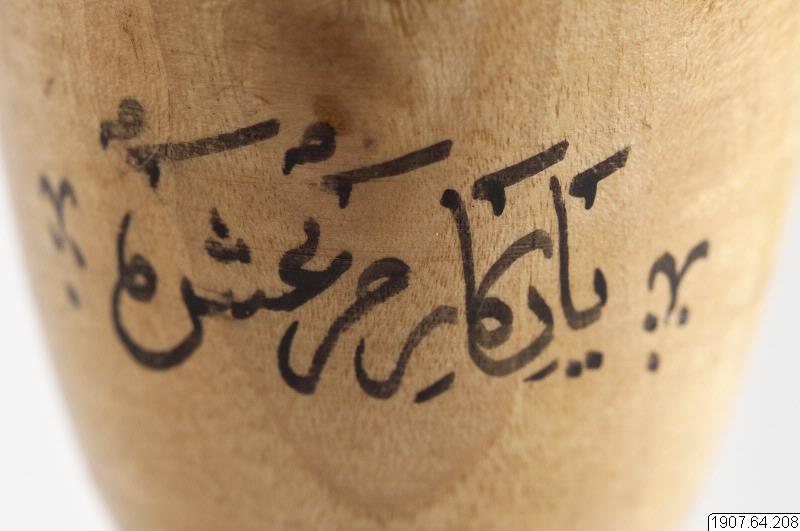 يادكار مرعش
1907.64.208